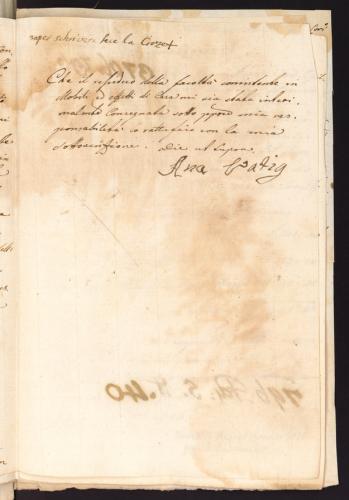 saper scrivere fece la Croce +
Che il residuo della facoltà consistente in
Mobili ed effetti di Casa mi sia stata interi-
nalmente Consegnata sotto propria mia res-
ponsabilità io ratifico con la mia
sottoscrizione. Die ut Supra.
Ana